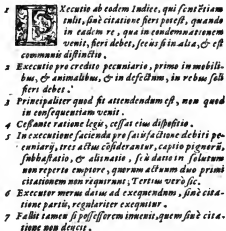 1 EXecutio ab eodem Iudice, qui sentētiam
tulit, sinè citatione fieri potest, quando
in eadem re, qua in condemnationem
venit, fieri debet, secùs si in alia, & est
communis distinctio.
2 Executio pro credito pecuniario, primo in mobili-
bus, & animalibus, & in defectum, in rebus soli
fieri debet.
3 Principaliter quod fit attendendum est, non quod
in consequentiam venit.
4 Cessante ratione legis, cessat eius dispositio.
5 In executione facienda pro satisfactione debiti pe-
cuniarij, tres actus cōsiderantur, captio pignoris,
subhastatio, & alienatio, seù datio in solutum
non reperto emptore, quorum actuum duo primi
citationem non requirunt, Tertius verò sic.
6 Executor merus datus ad exequendum, sinè cita-
tione partis, regulariter exequitur.
7 Fallit tamen si possessorem inuenit, quem sinè cita-
tione non deijcit.